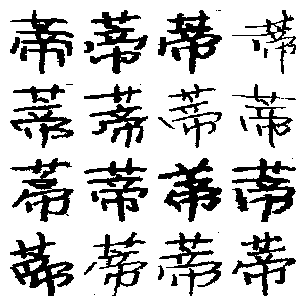 蒂蒂蒂蒂
蒂蒂蒂蒂
蒂蒂蒂蒂
蒂蒂蒂蒂